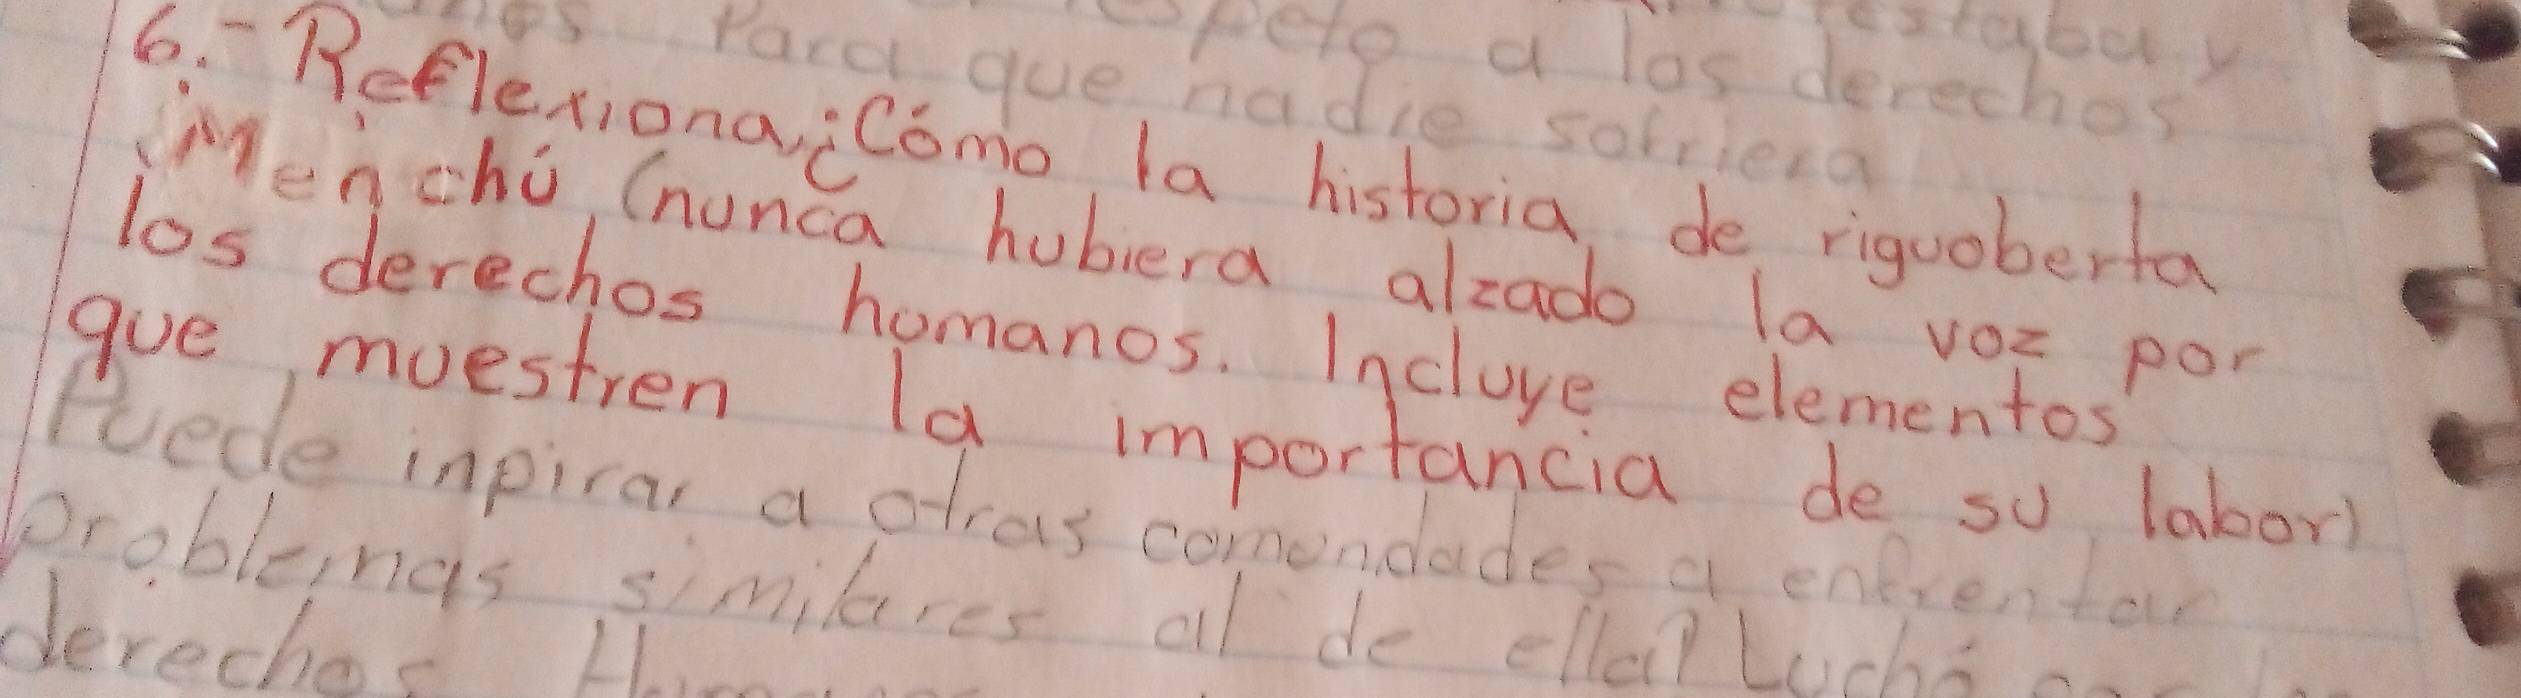 respeto a los derechos
Para que nadie sofriera
6.- Reflexiona,¿Cómo la historia de riguoberta
Menchú (nunca hubiera alzado la voz por
los derechos homanos. Incluye elementos
que muestren la importancia de su labor)
Puede inpirar a otras comundades a enfrentar
problemas similares al de ella? Luchó
derechos